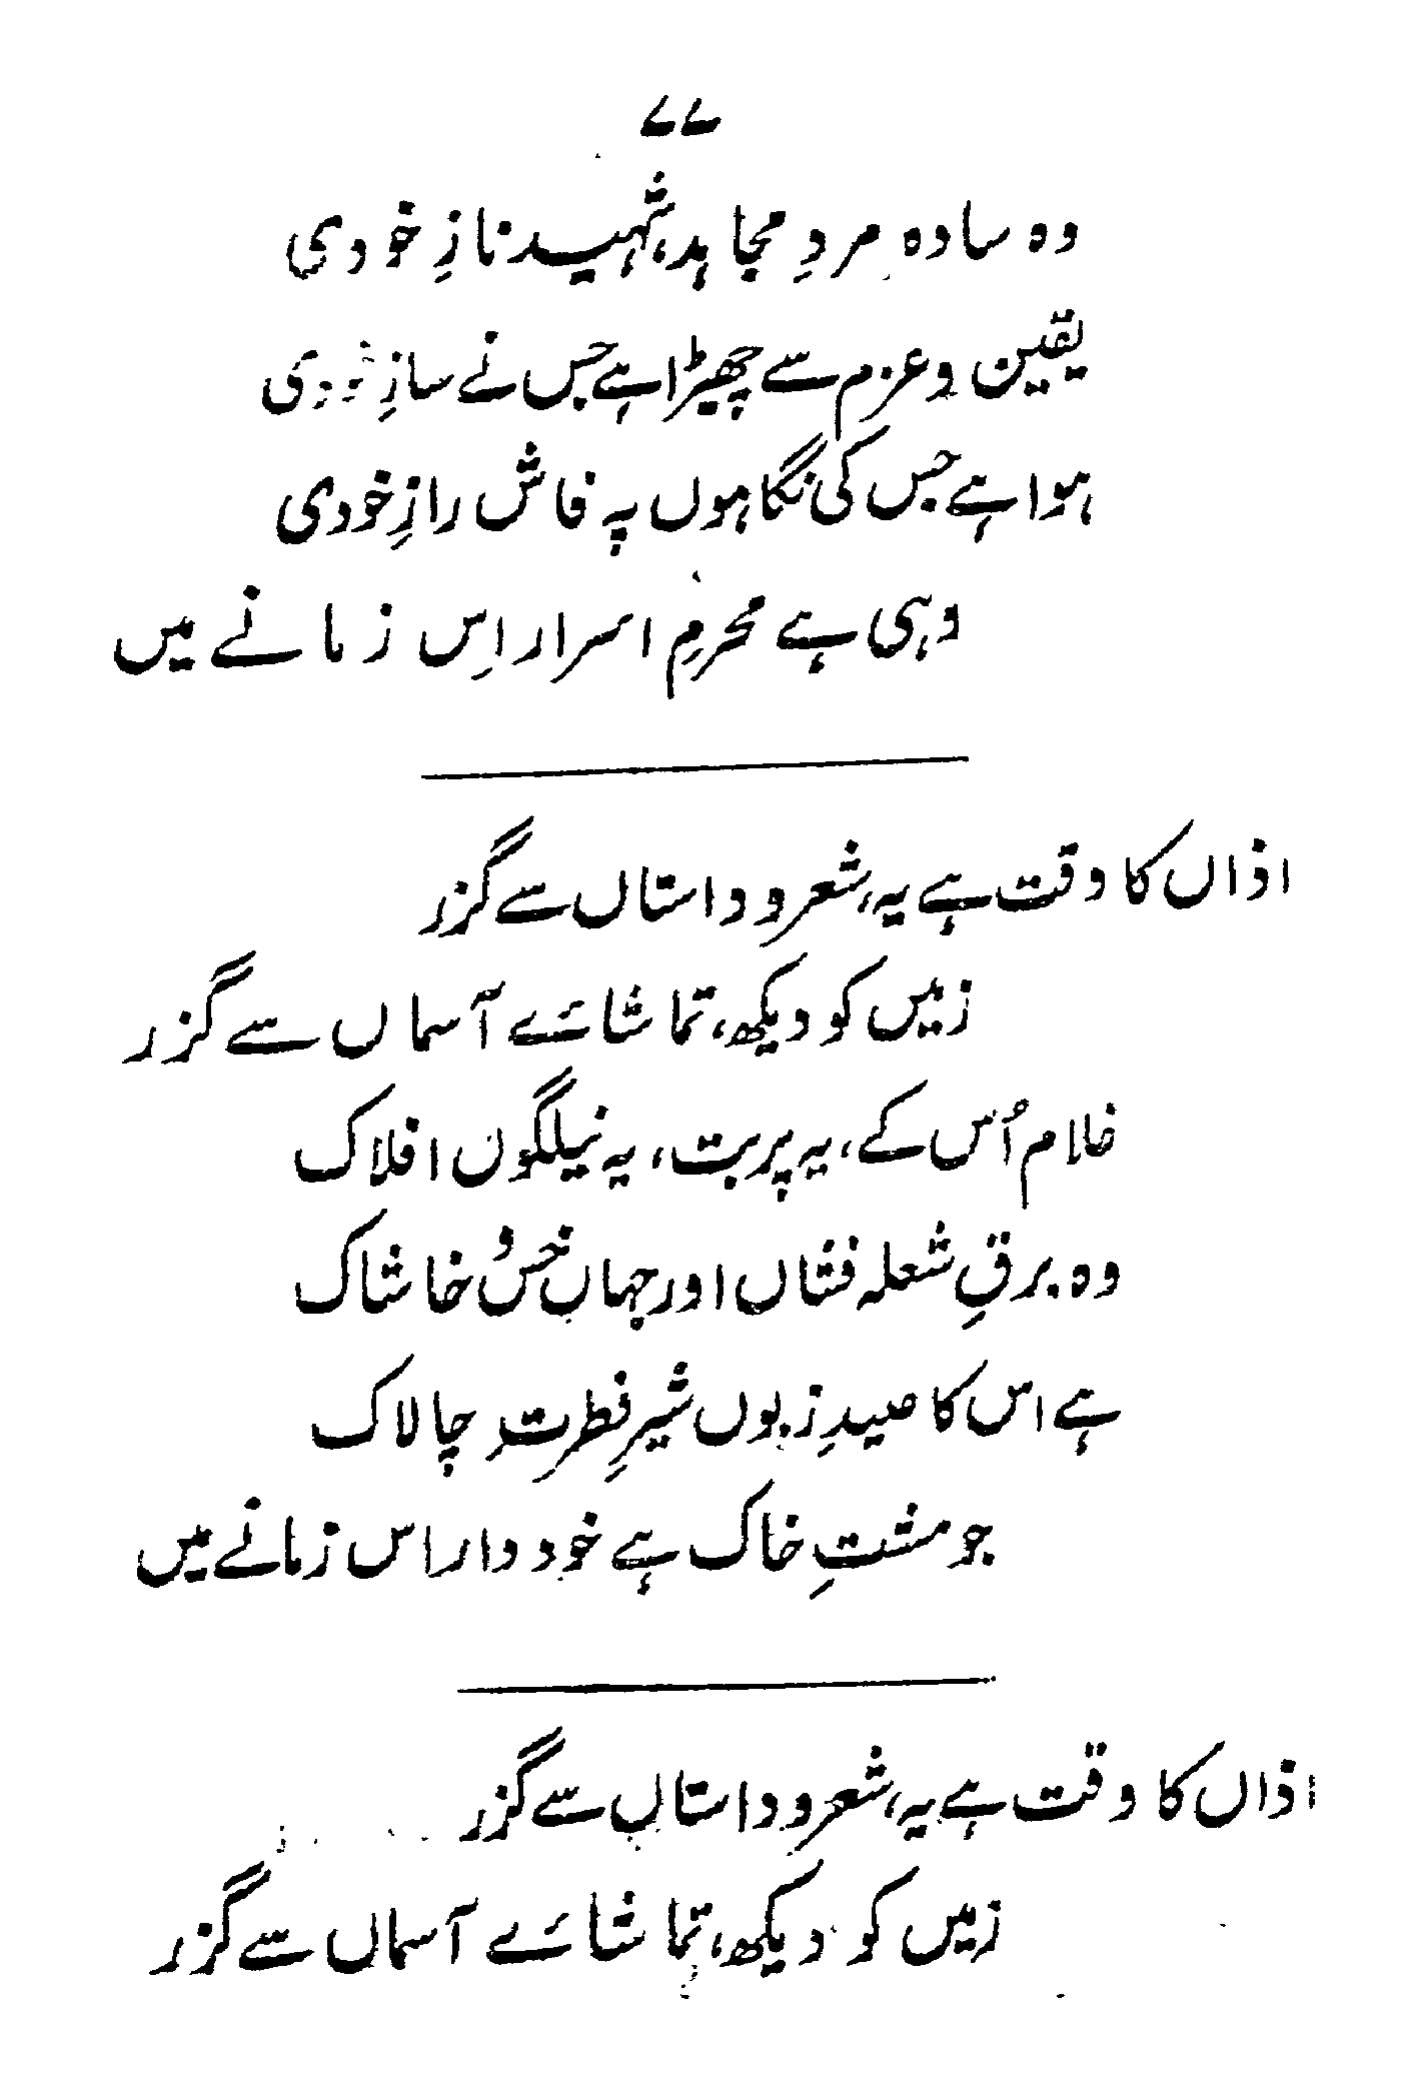 ۷۷
وہ سادہ مردِ مجاہد، شہید نازِ خودی
یقین و عزم سے چھیڑا ہے جس نے سازِ خودی
ہوا ہے جس کی نگاہوں پہ فاش رازِ خودی
وہی ہے محرمِ اسرار اِس زمانے میں
اذاں کا وقت ہے یہ، شعر و داستاں سے گزر
زمیں کو دیکھ، تماشائے آسماں سے گزر
غلام اُس کے، یہ پربت، یہ نیلگوں افلاک
وہ برقِ شعلہ فشاں اور جہاں خس و خاشاک
ہے اس کا صیدِ زبوں شیرِ فطرتِ چالاک
جو مشتِ خاک ہے خود دار اس زمانے میں
اذاں کا وقت ہے یہ، شعر و داستاں سے گزر
زمیں کو دیکھ، تماشائے آسماں سے گزر